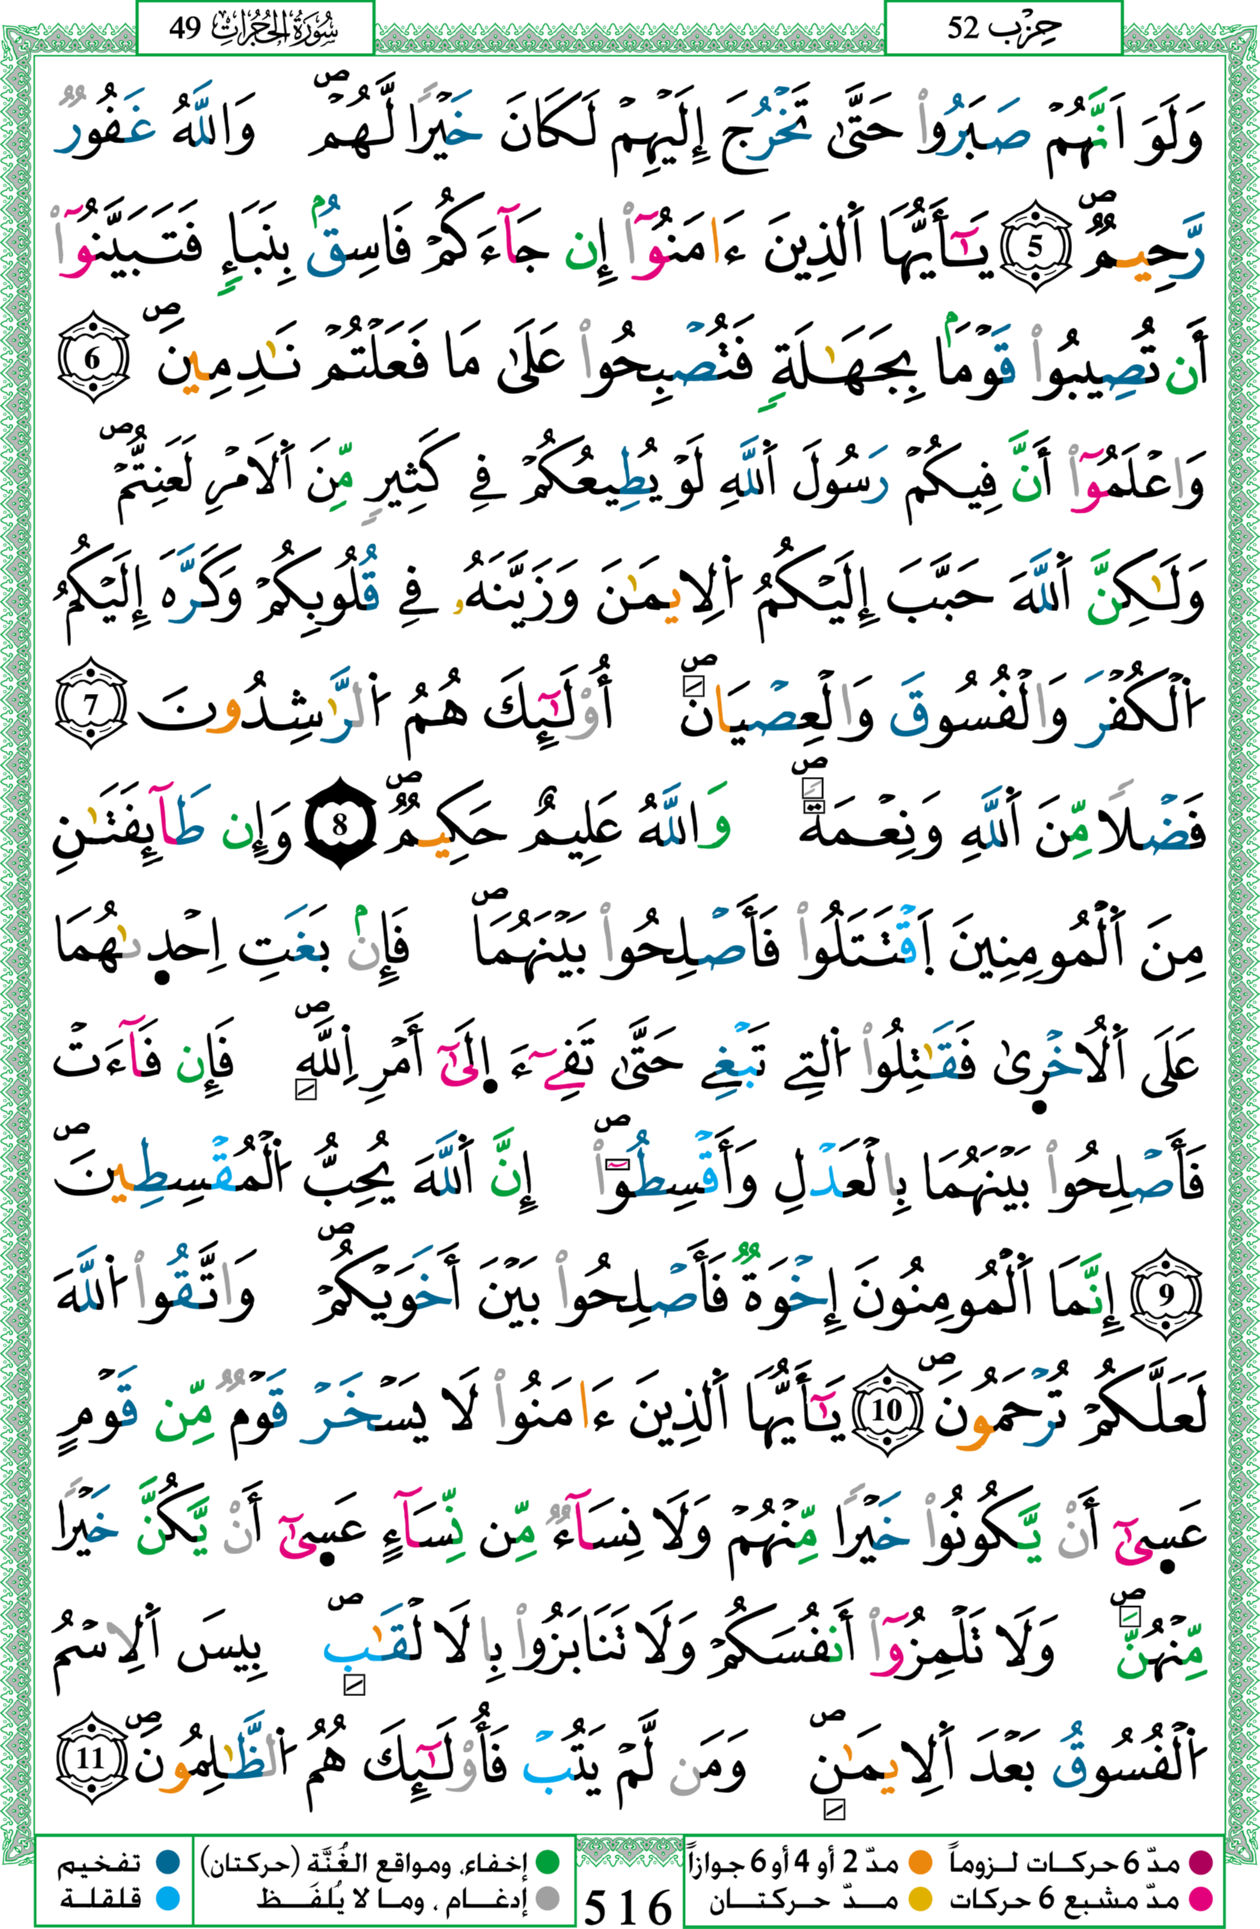 سُورَةُ الْحُجُرَاتِ 49
حِزْب 52
وَلَوَ اَنَّهُمْ صَبَرُوا۟ حَتَّىٰ تَخْرُجَ إِلَيْهِمْ لَكَانَ خَيْرًا لَّهُمْۖ وَاللَّهُ غَفُورٌ
رَّحِيمٌۖ 5 يَٰٓأَيُّهَا اَ۬لذِينَ ءَامَنُوٓا۟ إِن جَآءَكُمْ فَاسِقُۢ بِنَبَإٍ فَتَبَيَّنُوٓا۟
أَن تُصِيبُوا۟ قَوْمَۢا بِجَهَٰلَةٍ فَتُصْبِحُوا۟ عَلَىٰ مَا فَعَلْتُمْ نَٰدِمِينَۖ 6
وَاعْلَمُوٓا۟ أَنَّ فِيكُمْ رَسُولَ اَ۬للَّهِ لَوْ يُطِيعُكُمْ فِے كَثِيرٍ مِّنَ اَ۬لَامْرِ لَعَنِتُّمْۖ
وَلَٰكِنَّ اَ۬للَّهَ حَبَّبَ إِلَيْكُمُ اُ۬لِايمَٰنَ وَزَيَّنَهُۥ فِے قُلُوبِكُمْ وَكَرَّهَ إِلَيْكُمُ
اُ۬لْكُفْرَ وَالْفُسُوقَ وَالْعِصْيَانَۖ أُوْلَٰٓئِكَ هُمُ اُ۬لرَّٰشِدُونَ 7
فَضْلًا مِّنَ اَ۬للَّهِ وَنِعْمَةًۖ وَاللَّهُ عَلِيمٌ حَكِيمٌۖ 8 وَإِن طَآئِفَتَٰنِ
مِنَ اَ۬لْمُومِنِينَ اَ۪قْتَتَلُوا۟ فَأَصْلِحُوا۟ بَيْنَهُمَاۖ فَإِنۢ بَغَتِ اِحْد۪ىٰهُمَا
عَلَى اَ۬لُاخْر۪ىٰ فَقَٰتِلُوا۟ اُ۬لتِے تَبْغِے حَتَّىٰ تَفِےٓءَ اِلَىٰٓ أَمْرِ اِ۬للَّهِۖ فَإِن فَآءَتْ
فَأَصْلِحُوا۟ بَيْنَهُمَا بِالْعَدْلِ وَأَقْسِطُوٓا۟ۖ إِنَّ اَ۬للَّهَ يُحِبُّ اُ۬لْمُقْسِطِينَۖ
9 إِنَّمَا اَ۬لْمُومِنُونَ إِخْوَةٌ فَأَصْلِحُوا۟ بَيْنَ أَخَوَيْكُمْۖ وَاتَّقُوا۟ اُ۬للَّهَ
لَعَلَّكُمْ تُرْحَمُونَۖ 10 يَٰٓأَيُّهَا اَ۬لذِينَ ءَامَنُوا۟ لَا يَسْخَرْ قَوْمٌ مِّن قَوْمٍ
عَس۪ىٰٓ أَنْ يَّكُونُوا۟ خَيْرًا مِّنْهُمْ وَلَا نِسَآءٌ مِّن نِّسَآءٍ عَس۪ىٰٓ أَنْ يَّكُنَّ خَيْرًا
مِّنْهُنَّۖ وَلَا تَلْمِزُوٓا۟ أَنفُسَكُمْ وَلَا تَنَابَزُوا۟ بِالَالْقَٰبِۖ بِيسَ اَ۬لِاسْمُ
اُ۬لْفُسُوقُ بَعْدَ اَ۬لِايمَٰنِۖ وَمَن لَّمْ يَتُبْ فَأُوْلَٰٓئِكَ هُمُ اُ۬لظَّٰلِمُونَۖ 11
مدّ 6 حركات لـزوماً مدّ 2 أو 4 أو 6 جوازاً
مدّ مشبع 6 حركات مـــدّ حـــركتـــان
516
إخفاء، ومواقع الغُنَّة (حركتان) تفخيم
إدغــام ، ومـا لا يُلفَــظ قلقلة